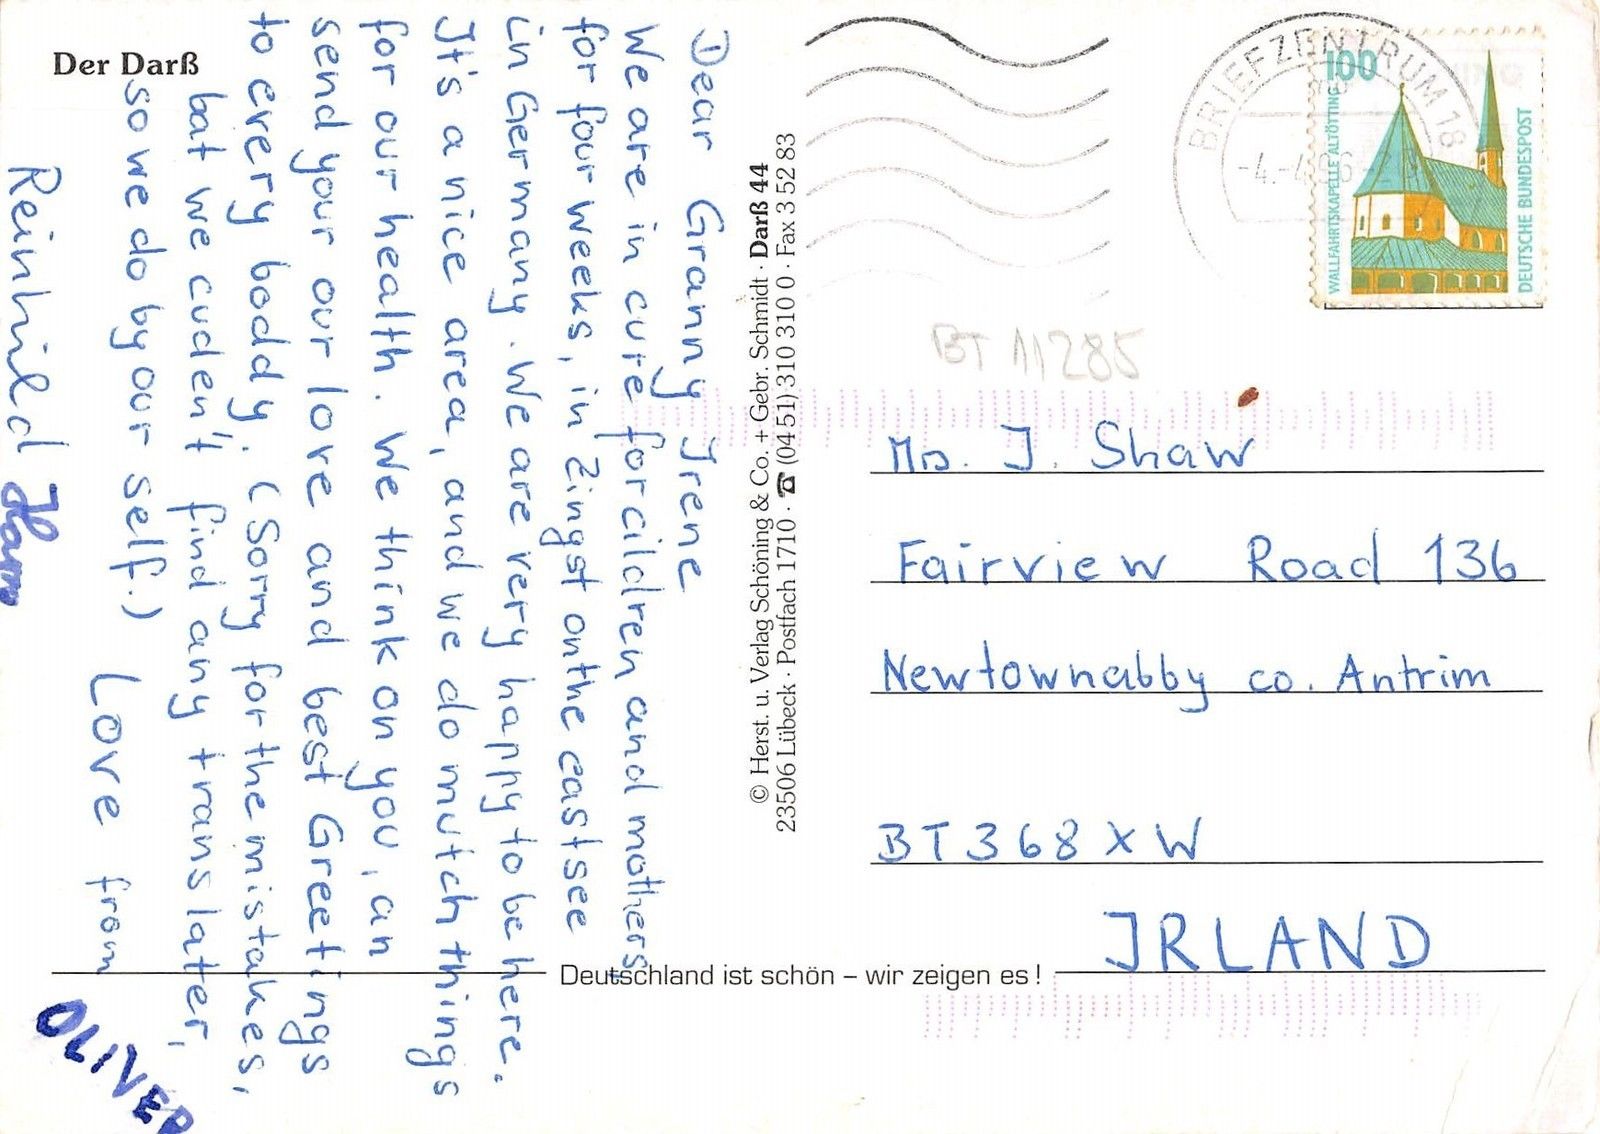 Der Darß
Dear Granny Irene
We are in cure for cildren and mothers
for four weeks, in Zingst onthe eastsee
in Germany. We are very happy to be here.
It's a nice area, and we do mutch things
for our health. We think on you, an
send your our love and best Greetings
to every boddy. (Sorry for the mistakes,
bat we cuden't find any trans later,
so we do by our self.)
Love from
Reinhild
OLIVER
© Herst. u. Verlag Schöning & Co. + Gebr. Schmidt · Darß 44
23506 Lübeck · Postfach 1710 · ☎ (04 51) 310 310 0 · Fax 3 52 83
BRIEFZENTRUM 18
-4.-4.96
100
WALLFAHRTSKAPELLE ALTÖTTING
DEUTSCHE BUNDESPOST
BT 11285
Ms. J. Shaw
Fairview Road 136
Newtownabby co. Antrim
BT368XW
IRLAND
Deutschland ist schön – wir zeigen es!